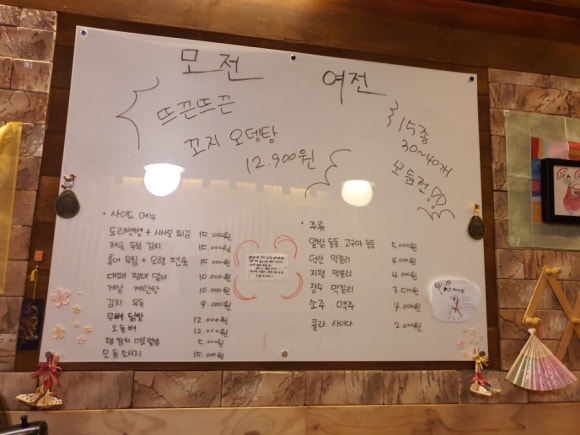 모전 여전
뜨끈뜨끈
꼬지 오뎅탕
12.900원
15종
30~40개
모듬전!!
• 사이드 메뉴
도리뱅뱅 + 시사모 튀김 15,000원
제육 두림 김치 15,000원
15,000원
10,000원
계란탕 10,000원
김치 우동 9,000원
무뼈 닭발 12,000원
오돌뼈 12,000원
5,000원
모듬 소시지 15,000원
• 주류
알밤 동동 고구마 동동 5,000원
덕산 막걸리 4,000원
지평 막걸리 4,000원
장수 막걸리 3,500원
소주 . 맥주 4,000원
콜라 사이다 2,000원